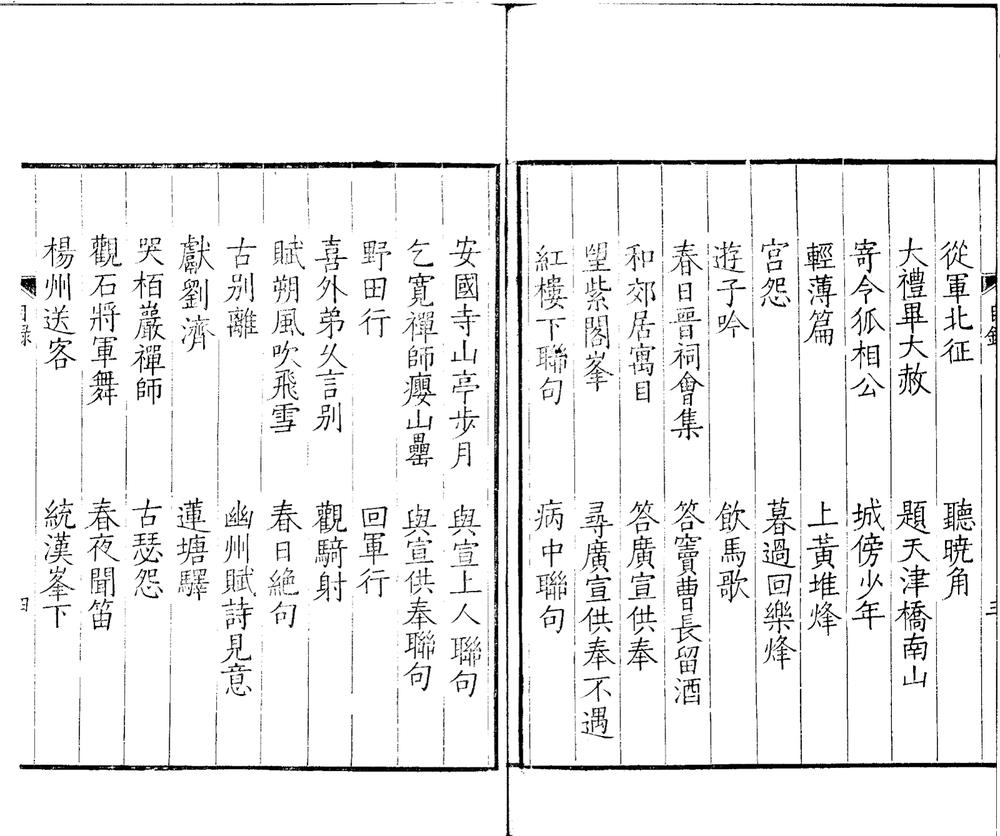 從軍北征　聽曉角
大禮畢大赦　題天津橋南山
寄令狐相公　城傍少年
輕薄篇　上黃堆烽
宮怨　暮過回樂烽
遊子吟　飲馬歌
春日晉祠會集　答竇曹長留酒
和郊居寓目　答廣宣供奉
望紫閣峯　尋廣宣供奉不遇
紅樓下聯句　病中聯句
安國寺山亭步月　與宣上人聯句
乞寬禪師癭山罍　與宣供奉聯句
野田行　回軍行
喜外弟又言別　觀騎射
賦朔風吹飛雪　春日絶句
古別離　幽州賦詩見意
獻劉濟　蓮塘驛
哭栢巖禪師　古瑟怨
觀石將軍舞　春夜聞笛
楊州送客　統漢峯下
目録　四